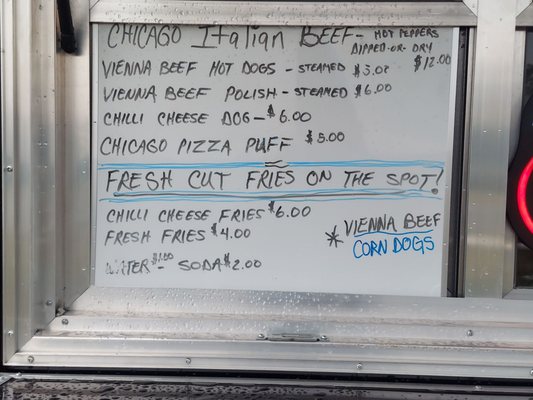 CHICAGO Italian BEEF - HOT PEPPERS
DIPPED-OR-DRY
$12.00
VIENNA BEEF HOT DOGS - STEAMED
VIENNA BEEF POLISH - STEAMED $6.00
CHILLI CHEESE DOG - $6.00
CHICAGO PIZZA PUFF
FRESH CUT FRIES ON THE SPOT!
CHILLI CHEESE FRIES $6.00
FRESH FRIES $4.00
* VIENNA BEEF
CORN DOGS
WATER - SODA $2.00